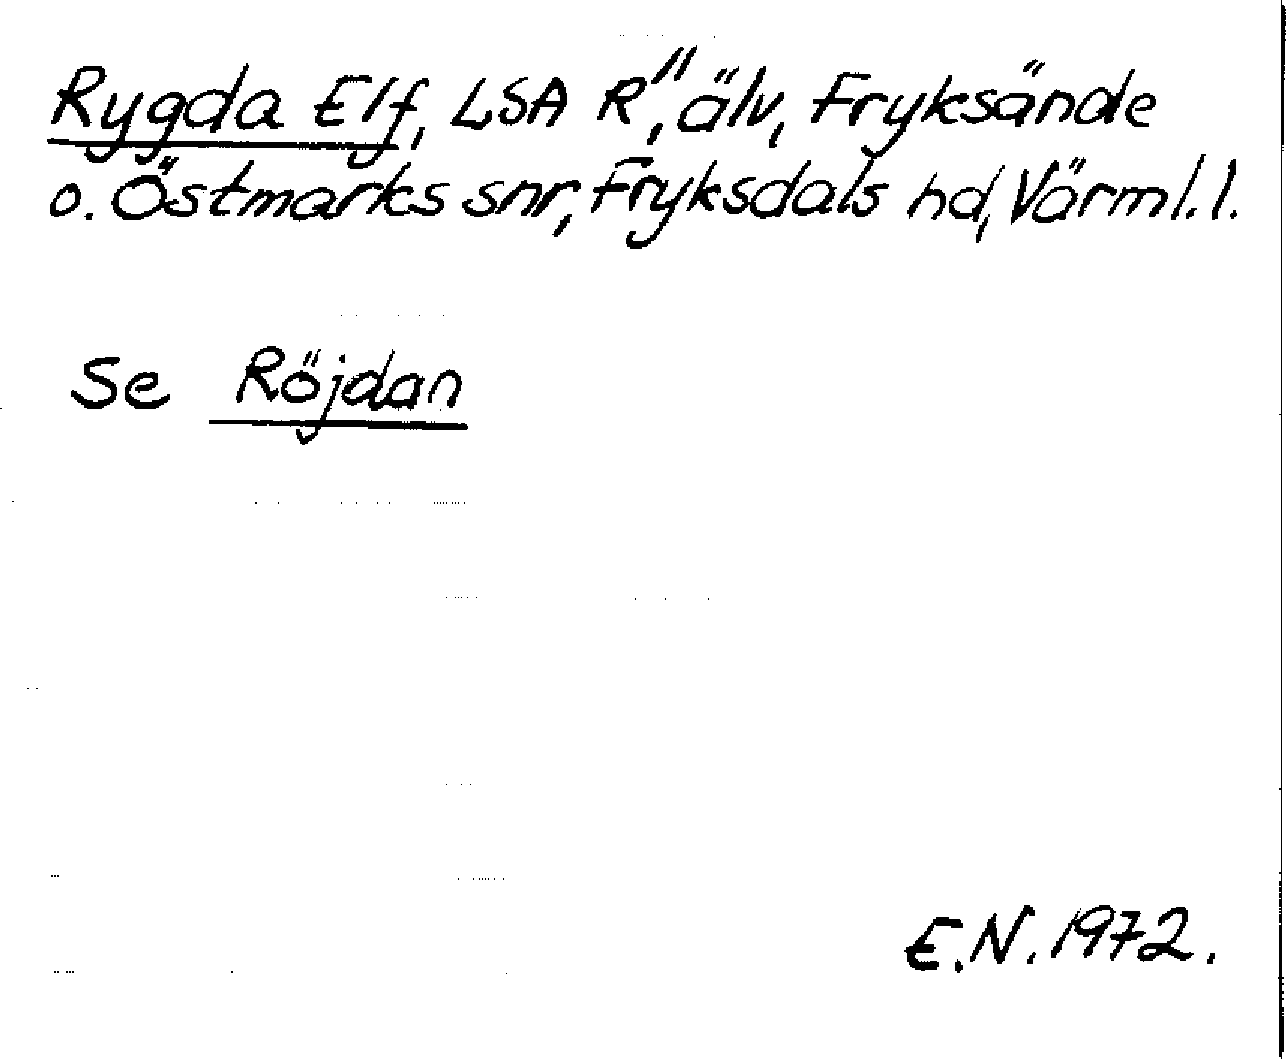 Rygda Elf, LSA R", älv, Fryksände
o. Östmarks snr, Fryksdals hd, Värml. l.
Se Röjdan
E.N. 1972.